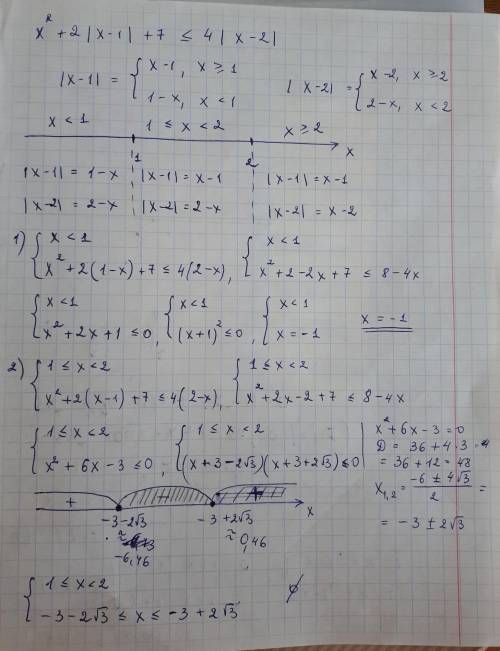 x² + 2|x-1| + 7 ≤ 4|x-2|
|x-1| = { x-1, x ≥ 1
1-x, x < 1
|x-2| = { x-2, x ≥ 2
2-x, x < 2
x < 1 1 ≤ x < 2 x ≥ 2
1 2 x
|x-1| = 1-x |x-1| = x-1 |x-1| = x-1
|x-2| = 2-x |x-2| = 2-x |x-2| = x-2
1) { x < 1 { x < 1
x² + 2(1-x) + 7 ≤ 4(2-x), x² + 2 - 2x + 7 ≤ 8 - 4x
{ x < 1 { x < 1 { x < 1
x² + 2x + 1 ≤ 0, (x+1)² ≤ 0, x = -1 x = -1
2) { 1 ≤ x < 2 { 1 ≤ x < 2
x² + 2(x-1) + 7 ≤ 4(2-x), x² + 2x - 2 + 7 ≤ 8 - 4x
{ 1 ≤ x < 2 { 1 ≤ x < 2
x² + 6x - 3 ≤ 0, (x+3-2√3)(x+3+2√3) ≤ 0
x² + 6x - 3 = 0
D = 36 + 4·3 =
= 36 + 12 = 48
x₁,₂ = (-6 ± 4√3)/2 =
= -3 ± 2√3
+ - +
-3-2√3 -3+2√3 x
≈ ≈ 0,46
-6,46
{ 1 ≤ x < 2
-3-2√3 ≤ x ≤ -3+2√3 ∅